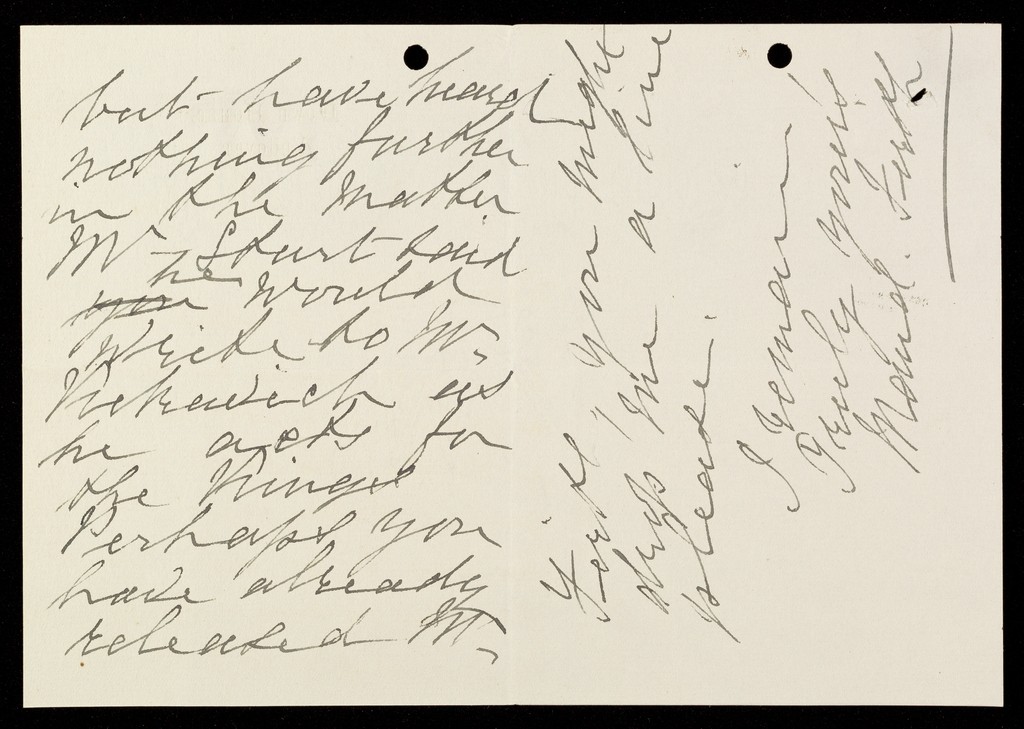 but have heard
nothing further
in the Matter
Mr Sturt said
you he would
Write to Mr.
as
he acts for
the Kings
Perhaps you
have already
released Mr.
you might
drop me a line
please.
I remain
Truly yours
Maud.